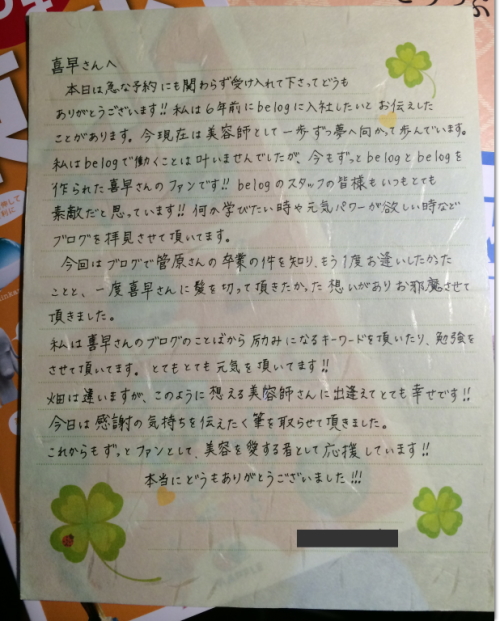 喜早さんへ
本日は急な予約にも関わらず受け入れて下さってどうも
ありがとうございます!! 私は6年前にbelogに入社したいとお伝えした
ことがあります。今現在は美容師として一歩ずつ夢へ向かって歩んでいます。
私はbelogで働くことは叶いませんでしたが、今もずっとbelogとbelogを
作られた喜早さんのファンです!! belogのスタッフの皆様もいつもとても
素敵だと思っています!! 何か学びたい時や元気パワーが欲しい時など
ブログを拝見させて頂いてます。
今回はブログで菅原さんの卒業の件を知り、もう1度お逢いしたかった
ことと、一度喜早さんに髪を切って頂きたかった想いがありお邪魔させて
頂きました。
私は喜早さんのブログのことばから励みになるキーワードを頂いたり、勉強を
させて頂いてます。とてもとても元気を頂いてます!!
畑は違いますが、このように想える美容師さんに出逢えてとても幸せです!!
今日は感謝の気持ちを伝えたく筆を取らせて頂きました。
これからもずっとファンとして、美容を愛する者として応援しています!!
本当にどうもありがとうございました!!!